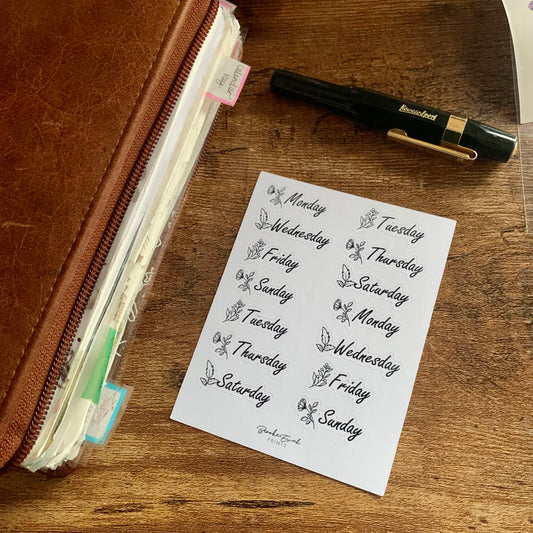 Kaweco Sport
Monday
Tuesday
Wednesday
Thursday
Friday
Saturday
Sunday
Monday
Tuesday
Wednesday
Thursday
Friday
Saturday
Sunday
PRINTS